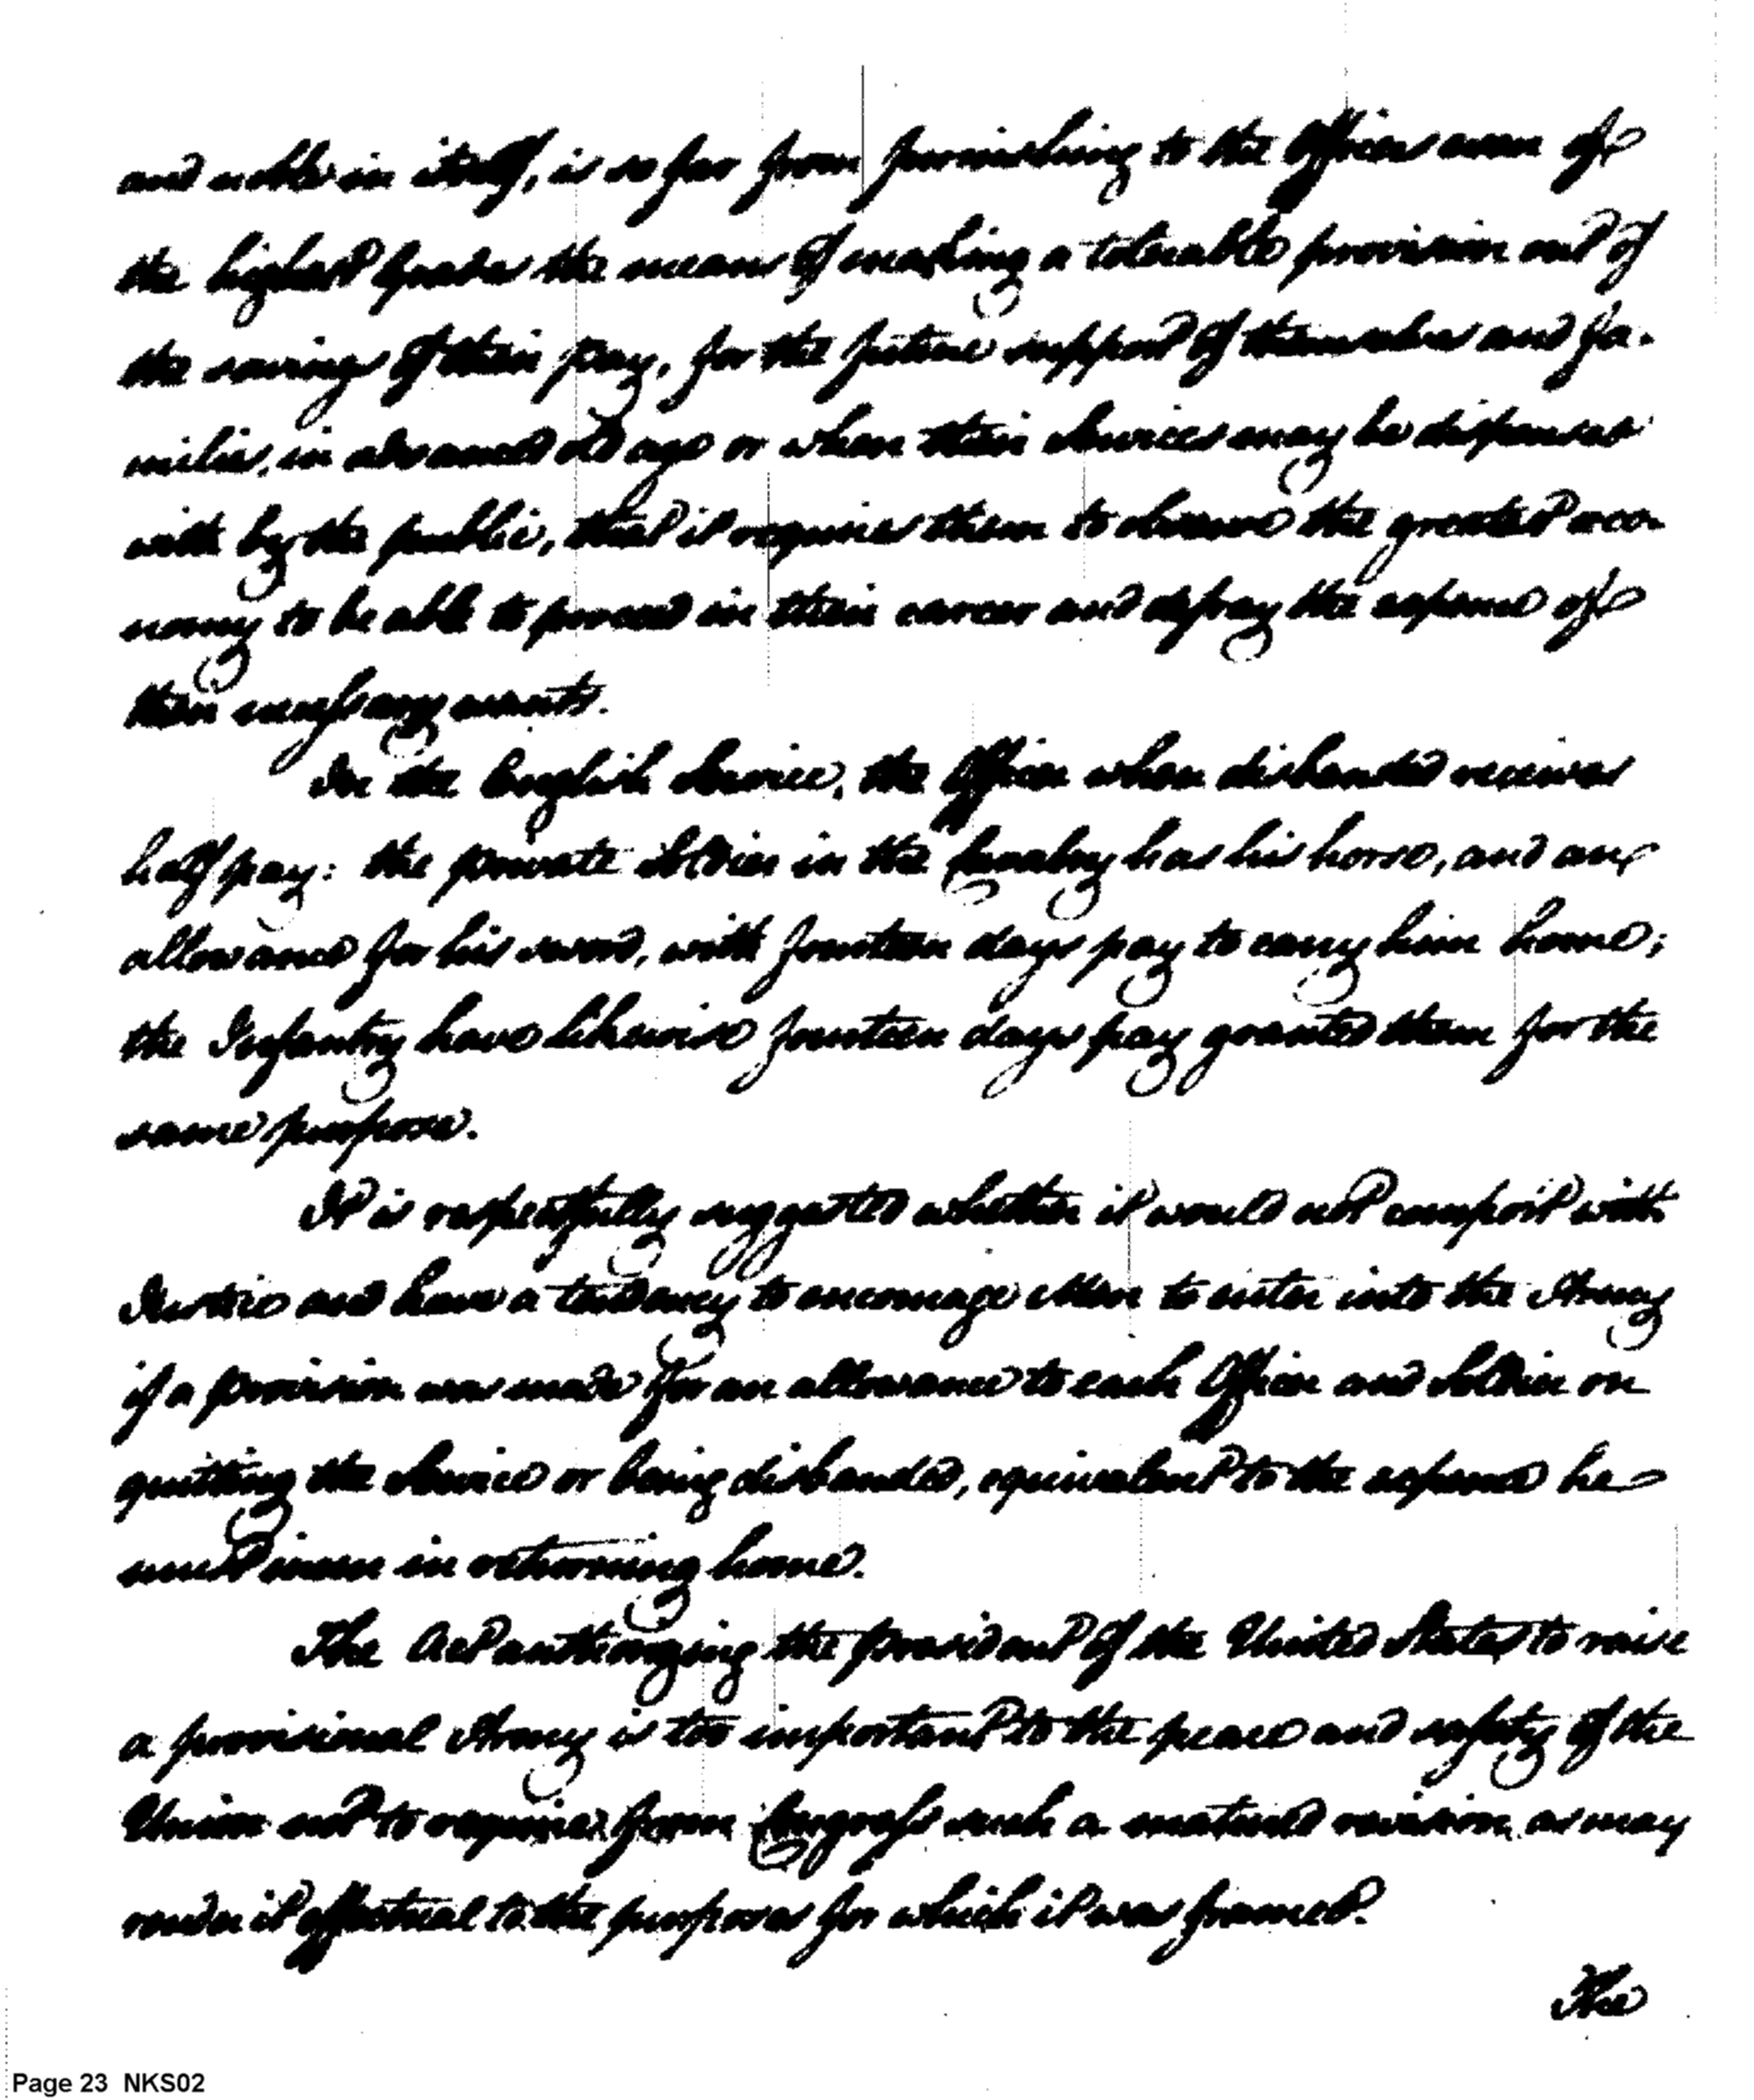 and noble in itself, is so far from furnishing to the Officer even of
the highest grade the means of making a tolerable provision out of
the savings of their pay, for the future support of themselves and fa-
milies, in advanced old age or when their Services may be dispensed
with by the public, that it requires them to observe the greatest oeco
nomy to be able to proceed in their career and defray the expence of
their necessary wants.
In the English Service, the Officer when disbanded receives
half pay: the private Soldier in the Cavalry has his horse, and an
allowance for his sword, with fourteen days pay to carry him home;
the Infantry have likewise fourteen days pay granted them for the
same purpose.
It is respectfully suggested whether it would not comport with
Justice and have a tendency to encourage Men to enter into the Army
if a provision was made for an allowance to each Officer and Soldier on
quitting the Service or being disbanded, equivalent to the expence he
must incur in returning home.
The Act authorizing the president of the United States to raise
a provisional Army is too important to the peace and safety of the
Union not to require from Congress such a matured revision as may
render it effectual to the purposes for which it was framed.
The
Page 23 NKS02